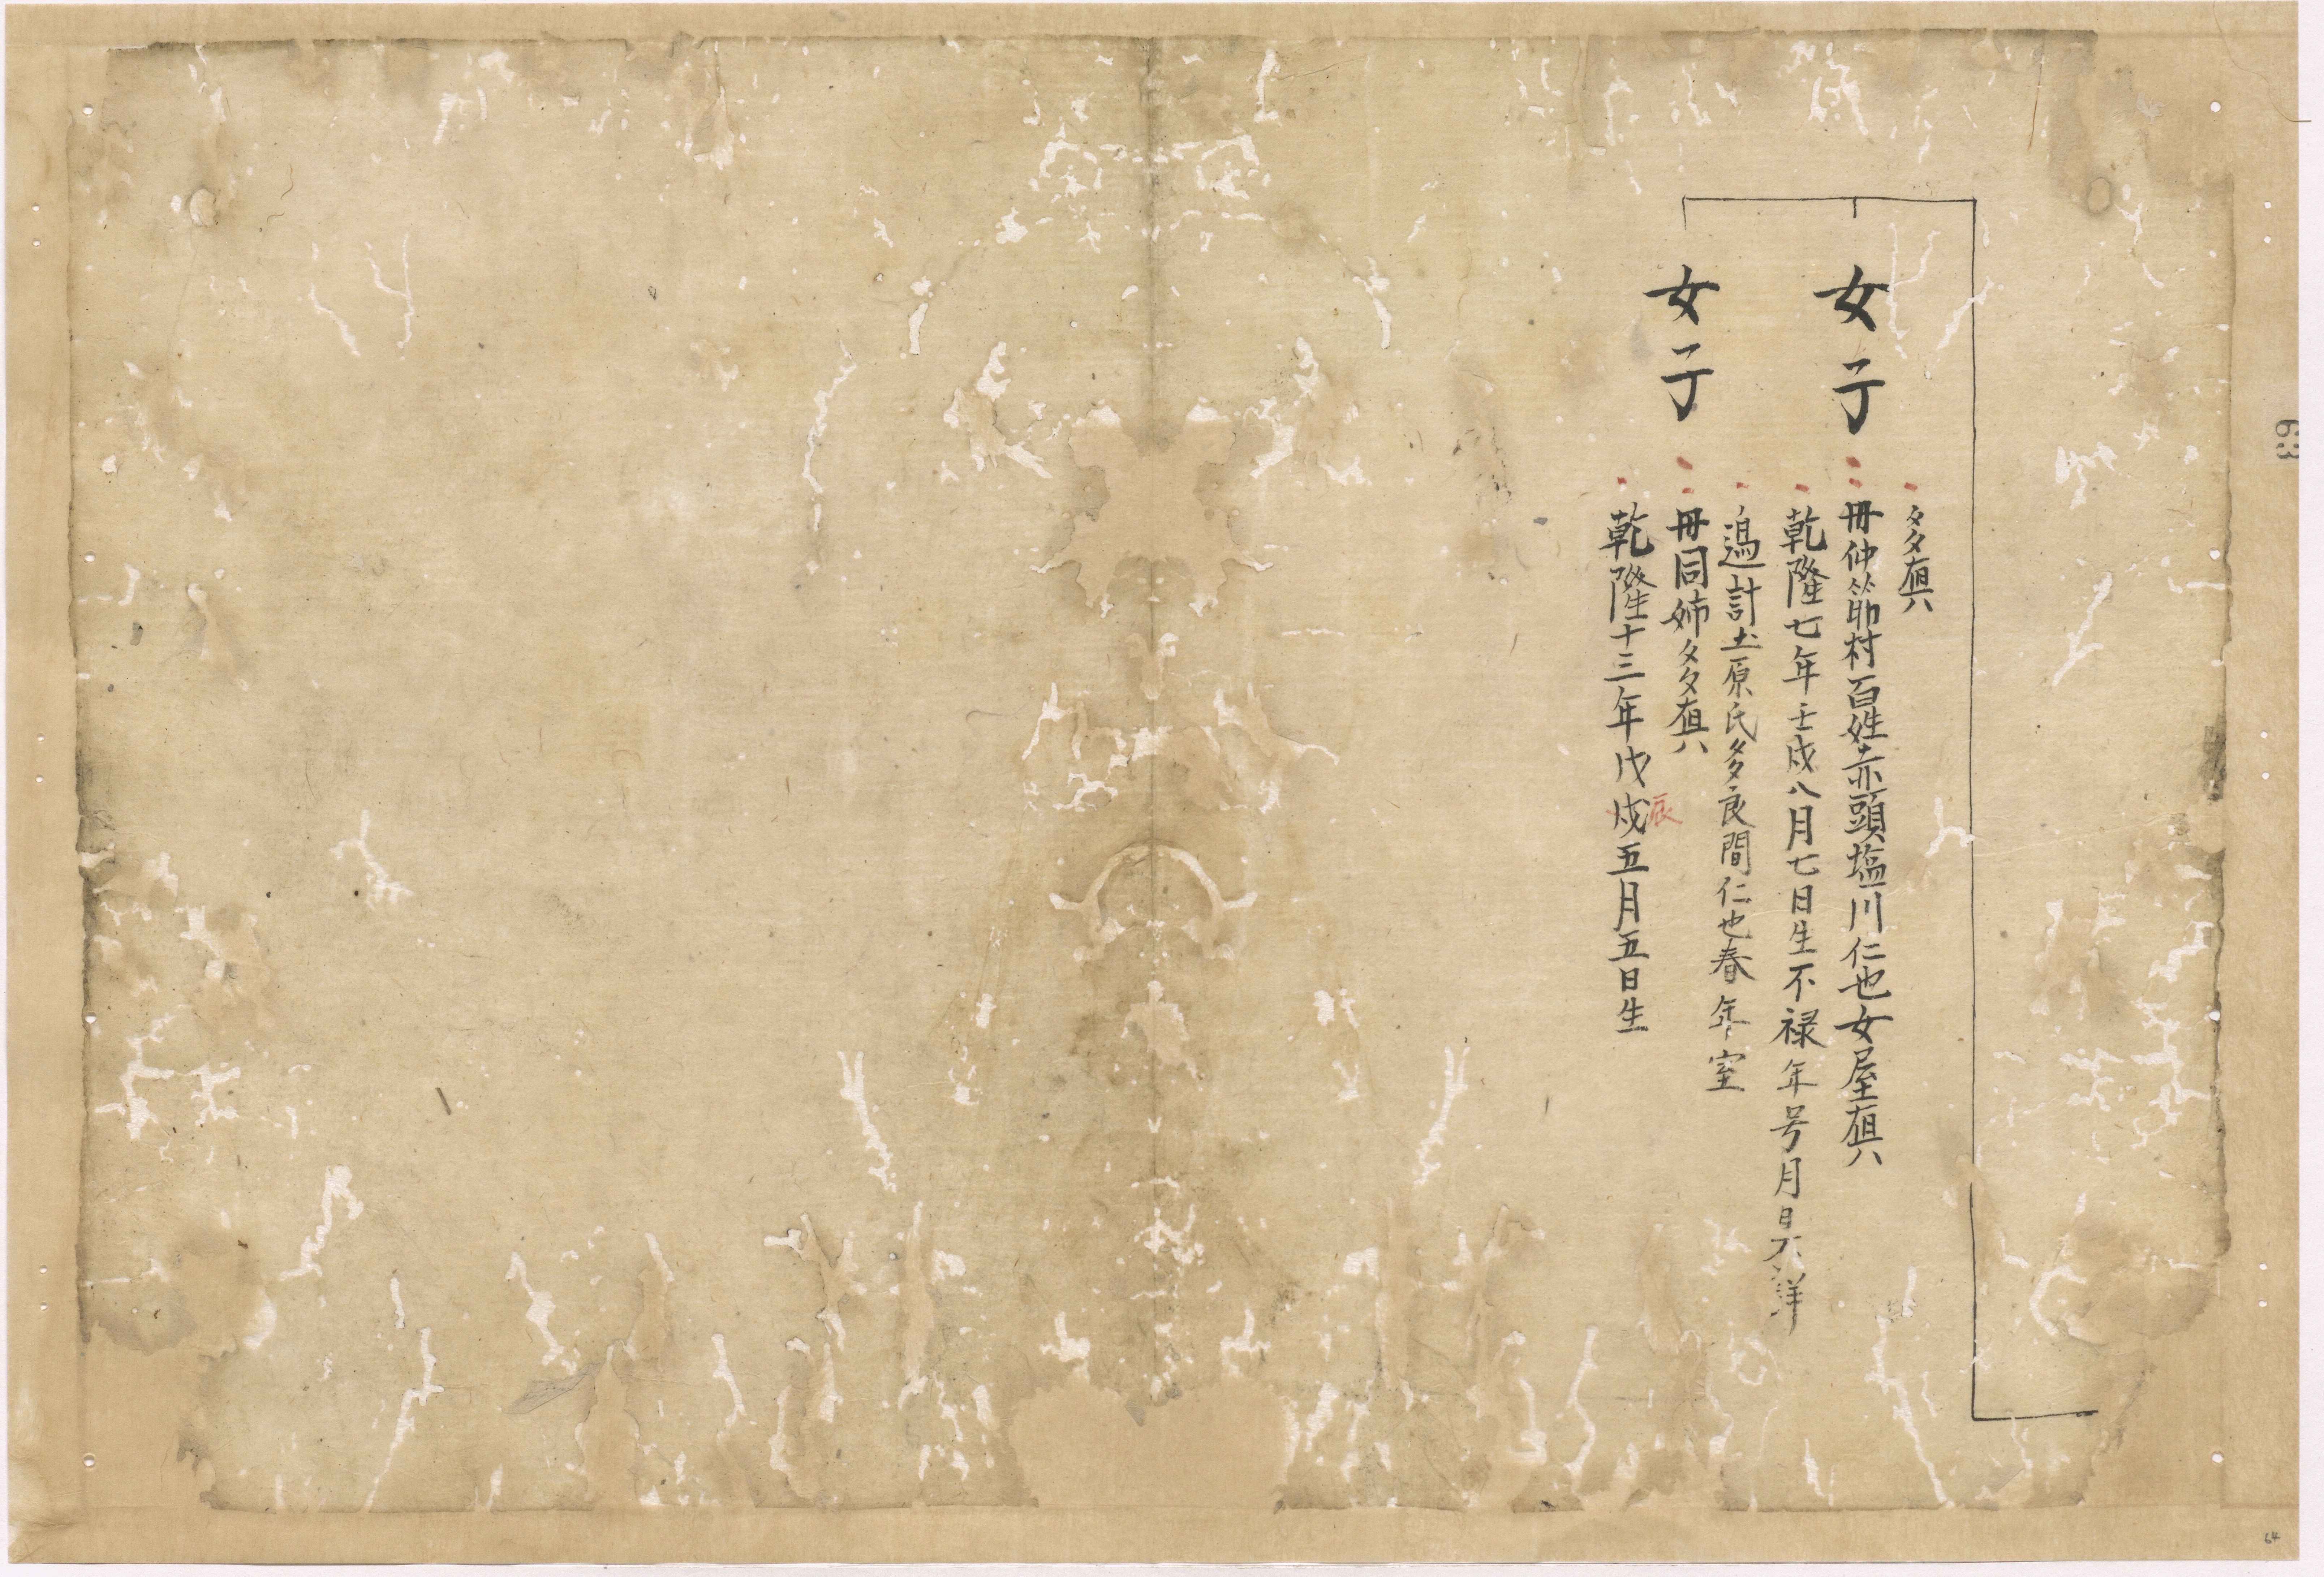 多多
女子
母仲筋村百姓赤頭塩川仁也女屋
乾隆七年壬戌八月七日生不禄年号月日不詳
適計土原氏多良間仁也春年室
女子
母同姉多多
乾隆十三年戊戌五月五日生
辰
63
64